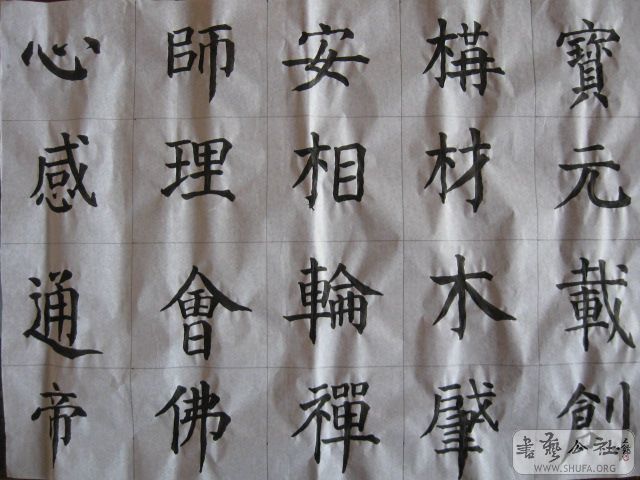 寶元載創
構材木肇
安相輪禪
師理會佛
心感通帝
書藝公社
WWW.SHUFA.ORG